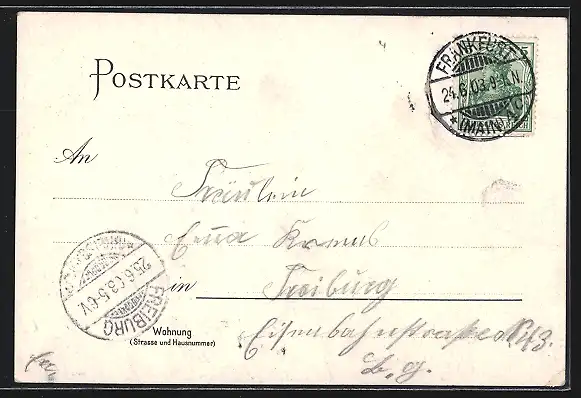 POSTKARTE
FRANKFURT
24.6.03.8-9N.
* (MAIN) 1 C
5
An
Fräulein
Erna Kraus
in Freiburg
25.6.03.5-6V.
FREIBURG
Wohnung
(Strasse und Hausnummer)
Eisenbahnstrasse 43.